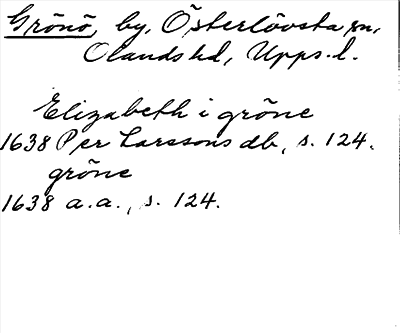 Grönö, by, Österlövsta sn,
Olands hd, Upps. l.
Elizabeth i gröne
1638 Per Larssons db, s. 124.
gröne
1638 a.a., s. 124.